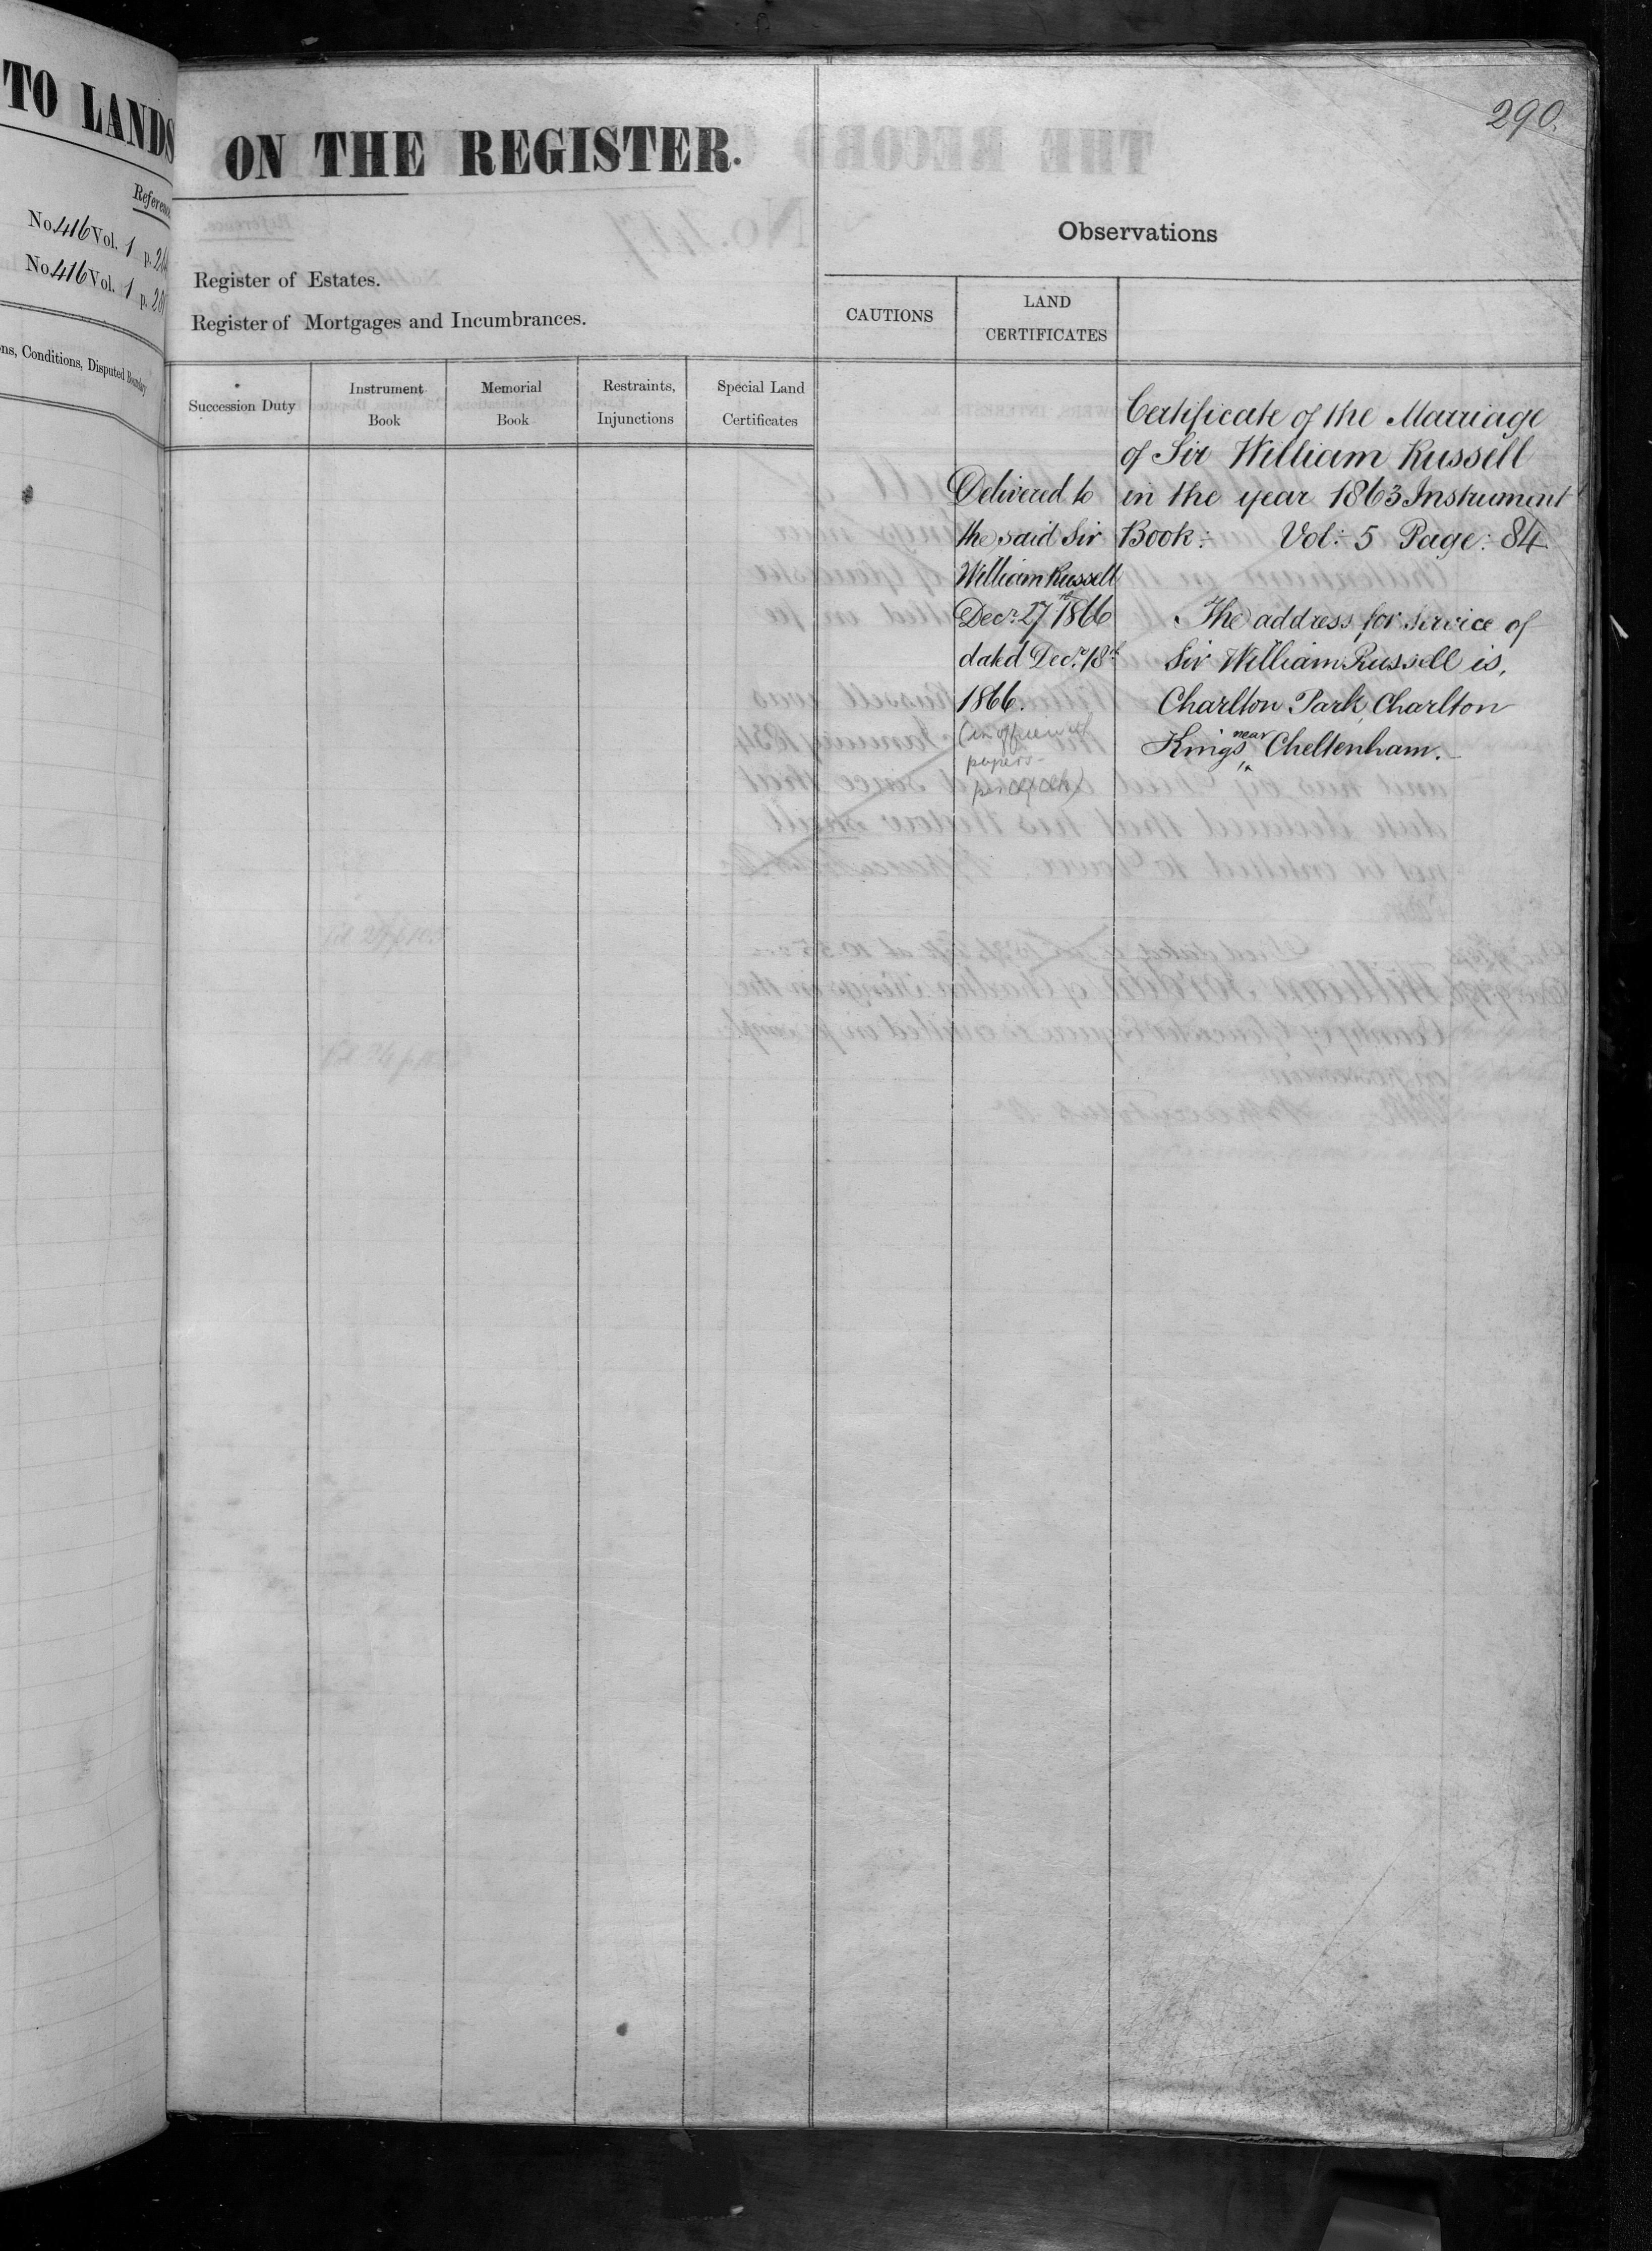 TO LANDS
Reference
No. 416 Vol. 1 p.
No. 416 Vol. 1 p.
Conditions, Disputed Boundary
290.
ON THE REGISTER.
Register of Estates.
Register of Mortgages and Incumbrances.
Succession Duty
Instrument
Book
Memorial
Book
Restraints,
Injunctions
Special Land
Certificates
Observations
CAUTIONS
LAND
CERTIFICATES
Delivered to
the said Sir
William Russell
Decr. 27th 1866
dated Decr. 18th
1866.
papers
Certificate of the Marriage
of Sir William Russell
in the year 1863 Instrument
Book: Vol: 5 Page: 84
The address for service of
Sir William Russell is,
Charlton Park, Charlton
Kings near Cheltenham.